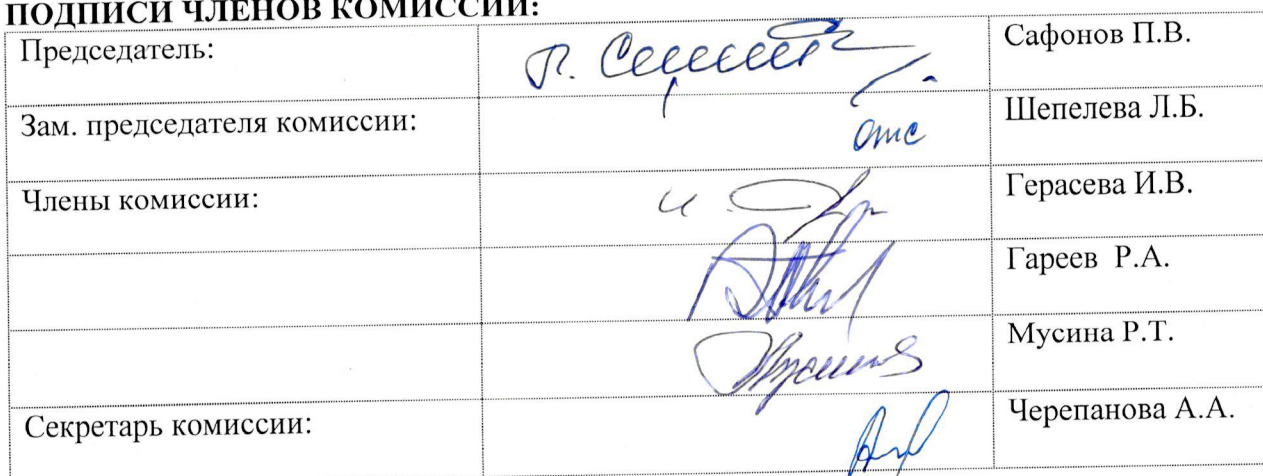 ПОДПИСИ ЧЛЕНОВ КОМИССИИ:
Председатель: Сафонов П.В.
Зам. председателя комиссии: отс Шепелева Л.Б.
Члены комиссии: Герасева И.В.
Гареев Р.А.
Мусина Р.Т.
Секретарь комиссии: Черепанова А.А.